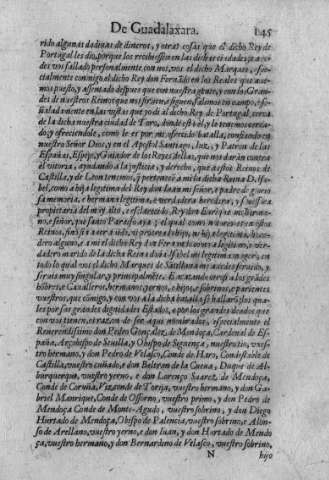 De Guadalaxara. 145
rido algunas dadiuas de dineros, y otras cosas que el dicho Rey de
Portugal les dio, porque los recibiessen en las dichas ciudades, acae-
des vos fallado personalmente con nos, vos el dicho Marques, espe-
cialmente conmigo el dicho Rey don Fernãdo en los Reales que aue-
mos puesto, y assentado despues que con nuestra gente, y con los Gran-
des de nuestros Reinos que nos siruen e siguen, salimos en campo, espe-
cialmente en las vistas que yo di al dicho Rey de Portugal, cerca
de la dicha nuestra ciudad de Toro, donde està el, y le tenemos cerca-
do, y ofreciendole, como le es por mi ofrecida batalla, confiando en
nuestro Señor Dios, y en el Apostol Santiago, luz, y Patron de las
Españas, Espejo, y Guiador de los Reyes dellas, que nos daràn contra
el vitoria, ayudando a la justicia, y derecho, que a estos Reinos de
Castilla, y de Leon tenemos, y pertenece a mi la dicha Reina D. Isa-
bel, como a hija legitima del Rey don Iuan mi señor, e padre de gloriosa
memoria, e hermana legitima, e verdadera heredera, y sucessora
propietaria del muy alto, e esclarecido Rey don Enrique mi herma-
no, e señor,
Reinos,
dero alguno, e a mi el dicho Rey don Fernando como a legitimo, e ver-
dadero marido de la dicha Reina doña Isabel mi legitima muger, en
todo lo qual vos el dicho Marques de Santillana me acedes seruido, y
seruis muy singular, y principalmente. E mirando otrosi a los grãdes
hõbres, e Caualleros, hermanos, yernos, e hijos, e sobrinos, e parientes
vuestros, que cõmigo, y con vos a la dicha batalla se hallarõ, los qua-
les por sus grandes dignidades Estados, e por los grandes deudos que
con vos tienen, es razon de ser aqui nombrados, especialmente el
Reuerendissimo don Pedro Gonçalez de Mendoça, Cardenal de Es-
paña, Arçobispo de Seuilla, y Obispo de Siguença, nuestro tio, vues-
tro hermano, y don Pedro de Velasco, Conde de Haro, Condestable de
Castilla, vuestro cuñado, e don Beltran de la Cueua, Duque de Al-
burquerque, vuestro yerno, e don Lorenço Suarez de Mendoça,
Conde de Coruña, Vizconde de Torija, vuestro hermano, y don Ga-
briel Manrique, Conde de Ossorno, vuestro primo, y don Pedro de
Mendoça Conde de Monte-Agudo, vuestro sobrino, y don Diego
Hurtado de Mendoça, Obispo de Palencia, vuestro sobrino, e Alon-
so de Arellano, vuestro yerno, e don Iuan, y don Hurtado de Mendo-
ça, vuestro hermano, y don Bernardino de Velasco, vuestro sobrino,
N hijo